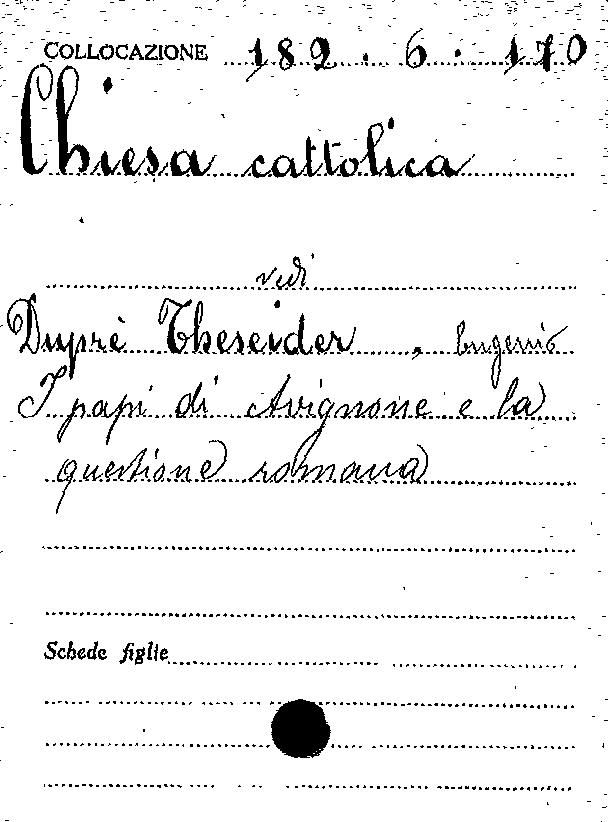 COLLOCAZIONE 182.6.170
Chiesa cattolica
vedi
Duprè Theseider, Eugenio
I papi di Avignone e la
questione romana
Schede figlie